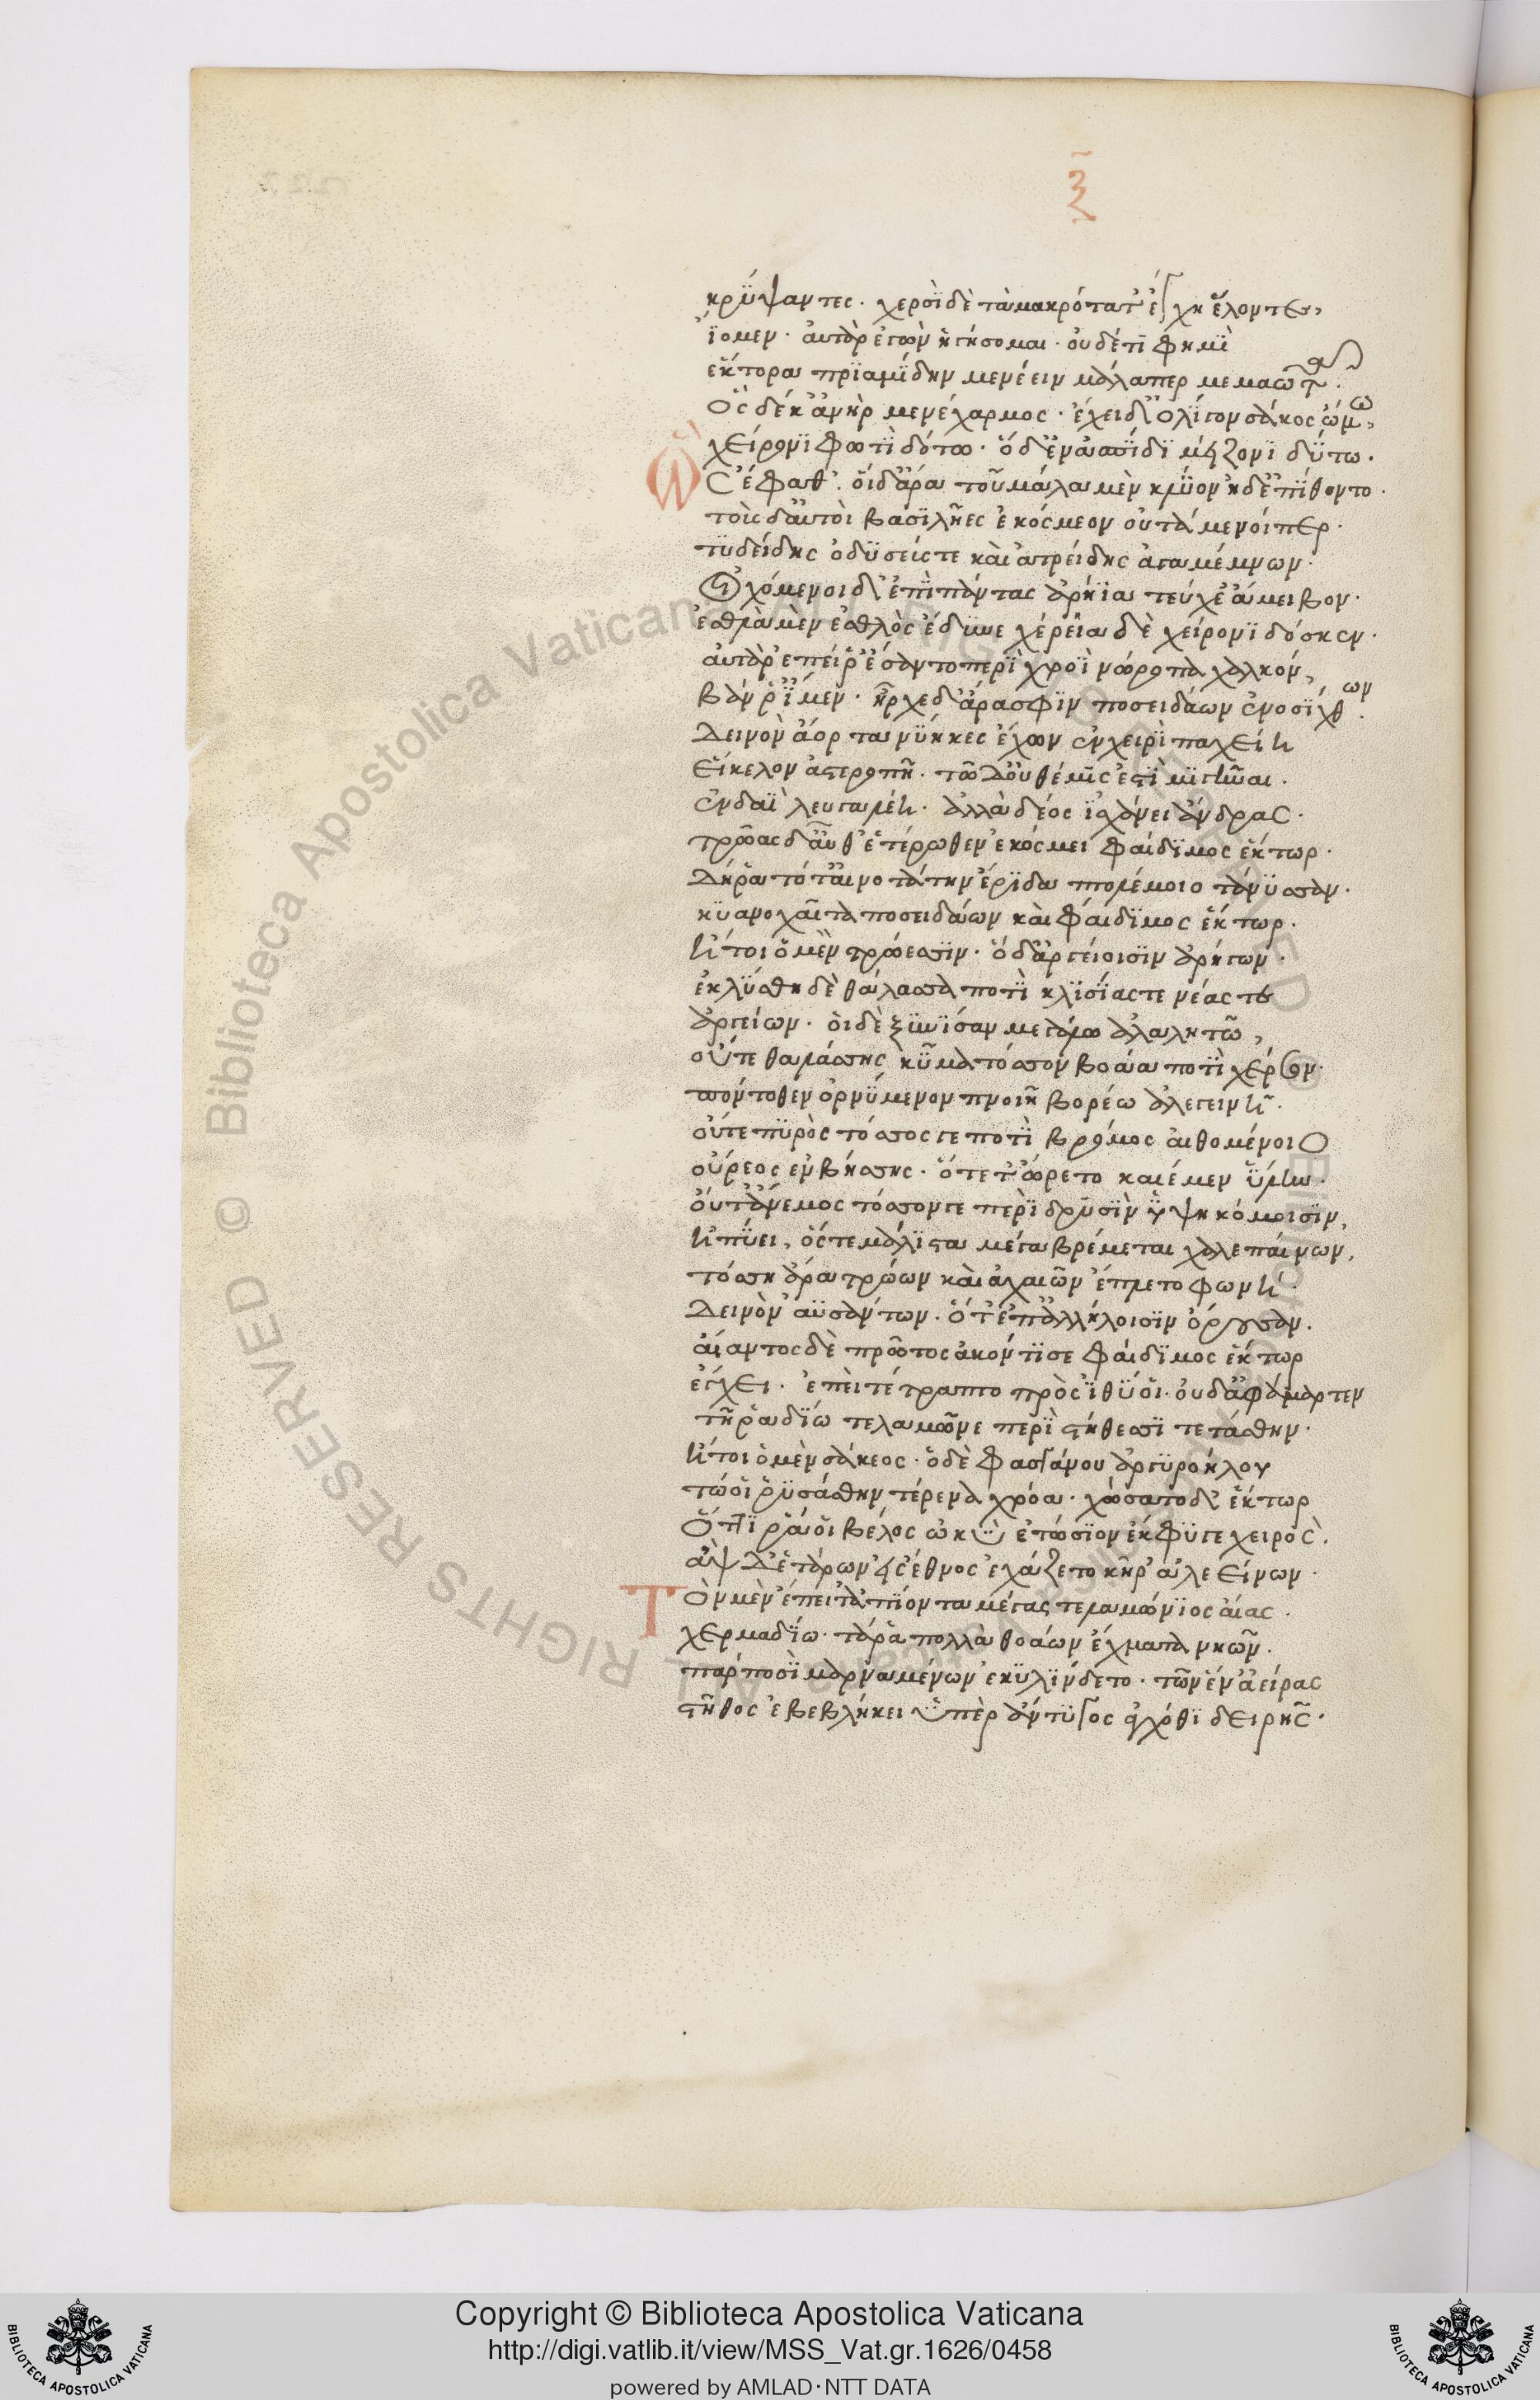 ξ
κρύψαντες. χερσὶ δὲ τὰ μακρότατ' ἔγχη ἑλόντες,
ἴομεν. αὐτὰρ ἐγὼν ἡγήσομαι. οὐδέ τι φημὶ
ἕκτορα πριαμίδην μενέειν μάλα περ μεμαῶτα.
Ὃς δέ κ' ἀνὴρ μενέχαρμος. ἔχει δ' ὀλίγον σάκος ὤμω,
χείρονι φωτὶ δότω. ὁ δ' ἐν ἀσπίδι μείζονι δύτω.
Ὣς ἔφαθ'. οἱ δ' ἄρα τοῦ μάλα μὲν κλύον ἠδ' ἐπίθοντο.
τοὺς δ' αὐτοὶ βασιλῆες ἐκόσμεον οὐτάμενοί περ.
τυδείδης ὀδυσεύς τε καὶ ἀτρείδης ἀγαμέμνων.
Οἰχόμενοι δ' ἐπὶ πάντας ἀρήϊα τεύχε' ἄμειβον.
ἐσθλὰ μὲν ἐσθλὸς ἔδυνε χέρεια δὲ χείρονι δόσκεν.
αὐτὰρ ἐπεί ῥ' ἕσαντο περὶ χροῒ νώροπα χαλκόν,
βάν ῥ' ἴμεν. ἦρχε δ' ἄρα σφιν ποσειδάων ἐνοσίχθων.
Δεινὸν ἄορ τανύηκες ἔχων ἐν χειρὶ παχείη
Εἴκελον ἀστεροπῆ. τῶ δ' οὐ θέμις ἐστὶ μιγῆναι.
ἐν δαῒ λευγαλέη. ἀλλὰ δέος ἰσχάνει ἄνδρας.
τρῶας δ' αὖθ' ἑτέρωθεν ἐκόσμει φαίδιμος ἕκτωρ.
Δή ῥα τότ' αἰνοτάτην ἔριδα πτολέμοιο τάνυσσαν.
κυανοχαῖτα ποσειδάων καὶ φαίδιμος ἕκτωρ.
ἤτοι ὁ μὲν τρώεσσιν. ὁ δ' ἀργείοισιν ἀρήγων.
ἐκλύσθη δὲ θάλασσα ποτὶ κλισίας τε νέας τε
ἀργείων. οἱ δὲ ξύνισαν μεγάλω ἀλαλητῶ,
οὔτε θαλάσσης κῦμα τόσσον βοάα ποτὶ χέρσον.
ποντόθεν ὀρνύμενον πνοιῆ βορέω ἀλεγεινῆ.
οὔτε πυρὸς τόσσος γε ποτὶ βρόμος αἰθομένοιο
οὔρεος ἐν βήσσης. ὅτε τ' ὤρετο καιέμεν ὕλην.
οὔτ' ἄνεμος τόσσον γε περὶ δρυσὶν ὑψηκόμοισιν,
ἠπύει, ὅς τε μάλιστα μέγα βρέμεται χαλεπαίνων,
τόσση ἄρα τρώων καὶ ἀχαιῶν ἔπλετο φωνή.
Δεινὸν ἀϋσάντων. ὅτ' ἐπ' ἀλλήλοισιν ὄρουσαν.
αἴαντος δὲ πρῶτος ἀκόντισε φαίδιμος ἕκτωρ
ἔγχει. ἐπεὶ τέτραπτο πρὸς ἰθύ οἱ. οὐδ' ἀφάμαρτεν
τῆ ῥα δύω τελαμῶνε περὶ στήθεσσι τετάσθην.
ἤτοι ὁ μὲν σάκεος. ὁ δὲ φασγάνου ἀργυροήλου
τώ οἱ ῥυσάσθην τέρενα χρόα. χώσατο δ' ἕκτωρ
Ὅττί ῥά οἱ βέλος ὠκὺ ἐτώσιον ἔκφυγε χειρός.
ἂψ δ' ἑτάρων εἰς ἔθνος ἐχάζετο κῆρ' ἀλεείνων.
Τὸν μὲν ἔπειτ' ἀπιόντα μέγας τελαμώνιος αἴας.
χερμαδίω. τά ῥα πολλὰ θοάων ἔχματα νηῶν.
πὰρ ποσὶ μαρναμένων ἐκυλίνδετο. τῶν ἓν ἀείρας
στῆθος ἐβεβλήκει ὑπὲρ ἄντυγος ἀγχόθι δειρῆς.
Biblioteca Apostolica Vaticana ALL RIGHTS RESERVED ©
Copyright © Biblioteca Apostolica Vaticana
http://digi.vatlib.it/view/MSS_Vat.gr.1626/0458
powered by AMLAD·NTT DATA
BIBLIOTECA APOSTOLICA VATICANA
BIBLIOTECA APOSTOLICA VATICANA